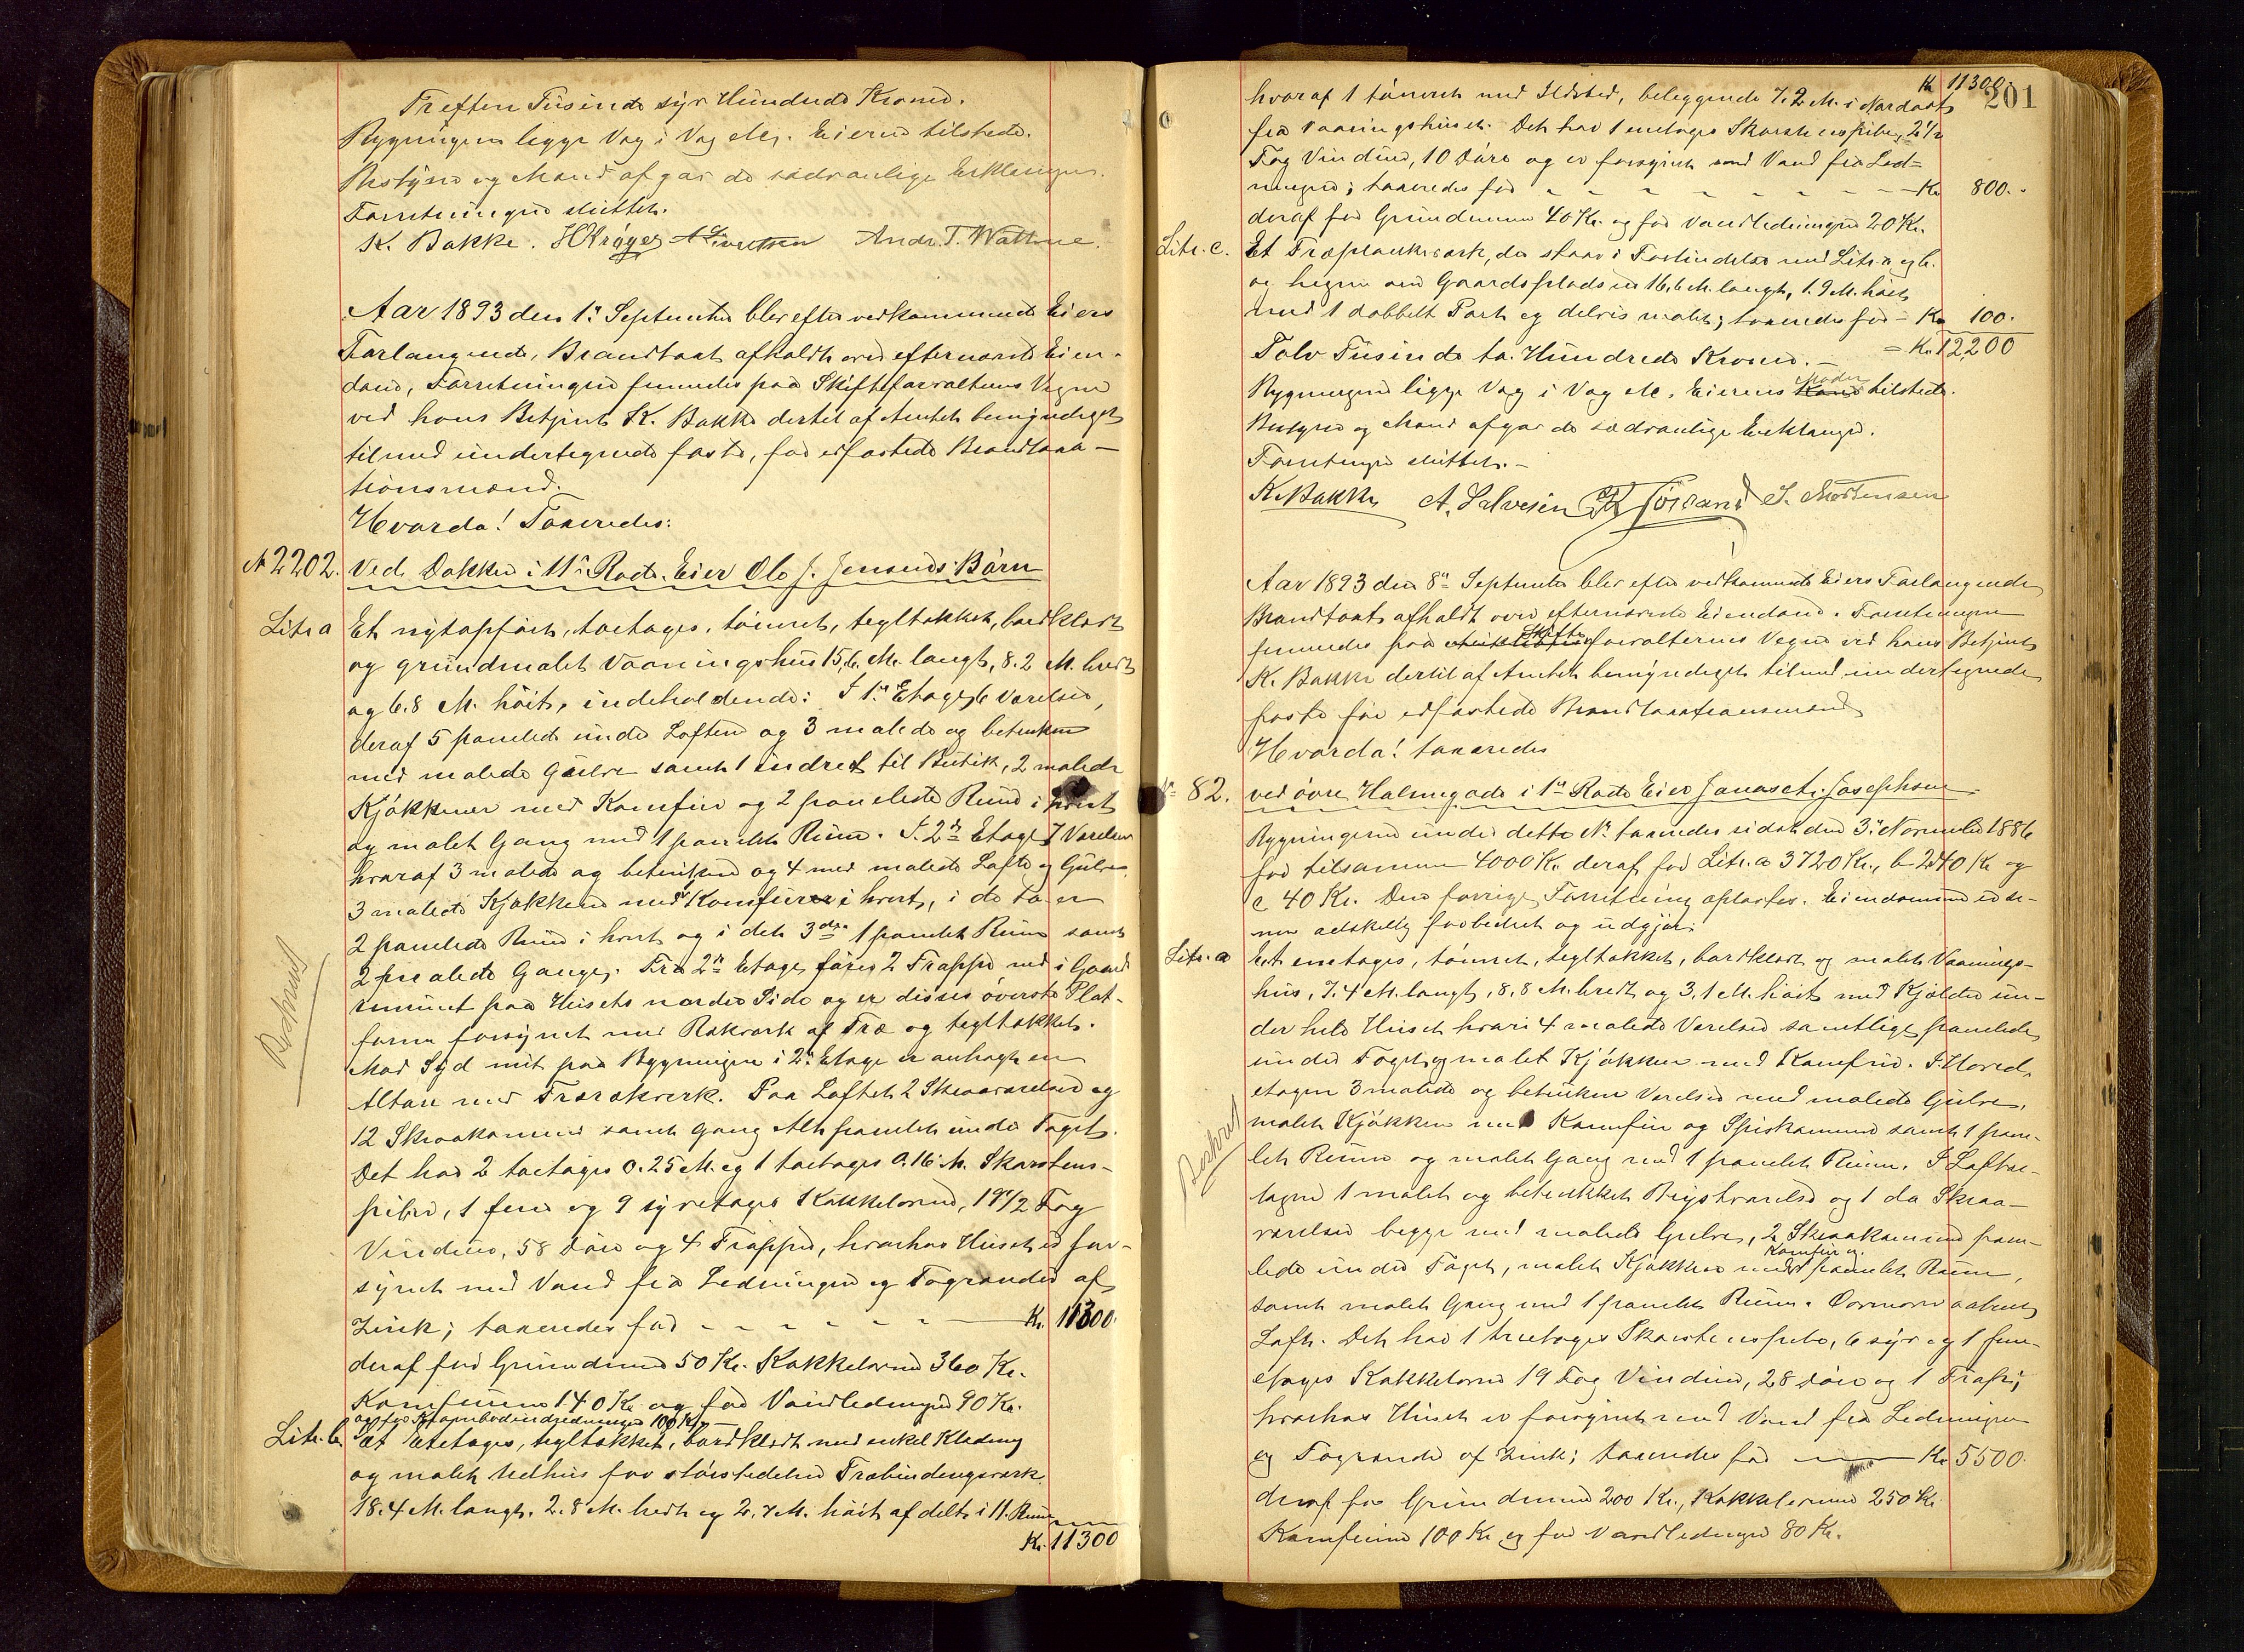 Tretten Tusinde syv Hundrede Kroner.
Bygningen ligge Væg i Væg M. Eieren tilstede.
Bestyrer og Mænd afgav de sædvanlige Erklæringer.
Forretningen sluttet.
K. Bakke. H Krøger A Sivertsen Andr. T. Wattne.
Aar 1893 den 1ste September blev efter vedkommende Eiers
Forlangende, Brandtaxt afholdt over efternævnte Eien-
dom, Forretningen fremmedes paa Skifteforvalterens Vegne
ved hans Betjent K. Bakke dertil af Amtet bemyndiget
tilmed undertegnede faste, for edfæstede Brandtaxa-
tionsmænd.
Hvorda! Taxeredes:
№ 2202. Ved Dokken i 11te Rode. Eier Ole J. Jensens Børn
Litr a Et nyt opført, toetages, tømret, tegltækket, bordklædt
og grundmalet Vaaningshus 15,6. M. langt, 8.2 M. bredt
og 6.8 M. høit, indeholdende: I 1ste Etage 6 Værelser,
deraf 5 panelede under Loftene og 3 malede og betrukne
med malede Gulve samt 1 indredt til Butik, 2 malede
Kjøkkener med Komfur og 2 panelede Rum i hvert
og malet Gang med 1 panelet Rum. I 2den Etage 7 Værelser
hvoraf 3 malede og betrukne og 4 med malede Lofte og Gulve
3 malede Kjøkkener med Komfurer i hvert, i de to er
2 panelede Rum i hvert og i det 3die 1 panelet Rum samt
2 malede Gange. Fra 2den Etage fører 2 Trapper ned i Gaards-
rummet paa Husets nordre Side og er disses øverste Plat-
forme forsynet med Rækværk af Træ og tegltækket.
Mod Syd mit paa Bygningen i 2den Etage er anbragt en
Altan med Trærækværk. Paa Loftet 2 Skraaværelser og
12 Skraakamere samt Gang Alt panelet under Taget.
Det har 2 toetages 0.25 M. og 1 toetages 0.16 M. Skorstens-
piber, 1 fem og 9 syvetages Kakkelovne, 19 1/2 Fag
Vinduer, 58 Døre og 4 Trapper, hvorhos Huset er for-
synet med Vand fra Ledningen og Tagrender af
Zink; taxeredes for - - - - - - Kr. 11300.
deraf for Grundmur 50 Kr. Kakkelovne 360 Kr.
Komfurerne 140 Kr. og for Vandledningen 90 Kr.
og for Krambodindredningen 100 Kr.
Litr. b. Et Etetages, tegltækket, bordklædt med enkel Klædning
og malet Udhus for størstedelen Træbindingsværk
18.4 M. langt. 2.8 M. bredt og 2.7 M. høit afdelt i 11. Rum
Kr. 11300
Beskrevet
Kr 11300
201
hvoraf 1 tømret med Ildsted, beleggende 7.2 M. i Nordost
fra Vaaningshuset. Det har 1 enetages Skorstenspibe, 2 1/2
Fag Vinduer, 10 Døre og er forsynet med Vand fra Led-
ningen; taxeredes for - - - - - - - Kr 800.
deraf for Grundmur 40 Kr. og for Vandledningen 20 Kr.
Litr. c. Et Træplankeværk, der staar i Forbindelse med Litr. a og b.
og hegner om Gaardspladsen 16.6 M. langt, 1.9 M. høit
med 1 dobbelt Port og delvis malet; taxeredes for - Kr 100.
Tolv Tusinde to Hundrede Kroner. - = Kr. 12,200
Moder
Bygningene ligge Væg i Væg M. Eierens Kone tilstede.
Bestyrer og Mænd afgav de sædvanlige Erklæringer.
Forretningen sluttet. -
K. Bakke A. Salvesen K Jørsand S. Mortensen
Aar 1893 den 8de September blev efter vedkommende Eiers Forlangende
Brandtaxt afholdt over efternævnte Eiendom. Forretningen
fremmedes paa Skifteforvalterens Vegne ved hans Betjent
K. Bakke dertil af Amtet bemyndiget tilmed undertegnede
faste for edfæstede Brandtaxationsmænd
Hvorda! taxeredes
№ 82. ved øvre Holmegade i 1ste Rode Eier Jonas Chr. Josephsen
Bygningerne under dette № taxeredes sidst den 3die November 1886
for tilsammen 4000 Kr. deraf for Litr. a 3720 Kr., b 240 Kr og
c 40 Kr. Den forrige Forretning opløstes. Eiendommen er se-
nere adskillig forbedret og udgjør:
Litr. a Et enetages, tømret, tegltækket, bordklædt og malet Vaanings-
hus, 7.4 M. langt, 8,8 M. bredt og 3,1 M. høit med Kjelder un-
der hele Huset hvori 4 malede Værelser samtlige panelede
under Taget, og malet Kjøkken med Komfur. I Hoved-
etagen 3 malede og betrukne Værelser med malede Gulve,
malet Kjøkken med Komfur og Spiskammer samt 1 pane-
let Rum og malet Gang med 1 panelet Rum. I Loftse-
tagen 1 malet og betrukket Kvistværelse og 1 do Skraa-
værelse begge med malede Gulve, 2 Skraakamere pane-
Komfur og
lede under Taget, malet Kjøkken med panelet Rum,
samt malet Gang med 1 panelet Rum. Ovenover aabent
Loft. Det har 1 treetages Skorstenspibe, 6 syv og 1 fem-
etages Kakkelovne 19 Fag Vinduer, 28 Døre og 1 Trappe;
hvorhos Huset er forsynet med Vand fra Ledningen
og Tagrender af Zink; taxeredes for - Kr 5500.
deraf for Grundmuren 200 Kr., Kakkelovnene 250 Kr.
Komfurene 100 Kr og for Vandledningen 80 Kr.
Beskrevet